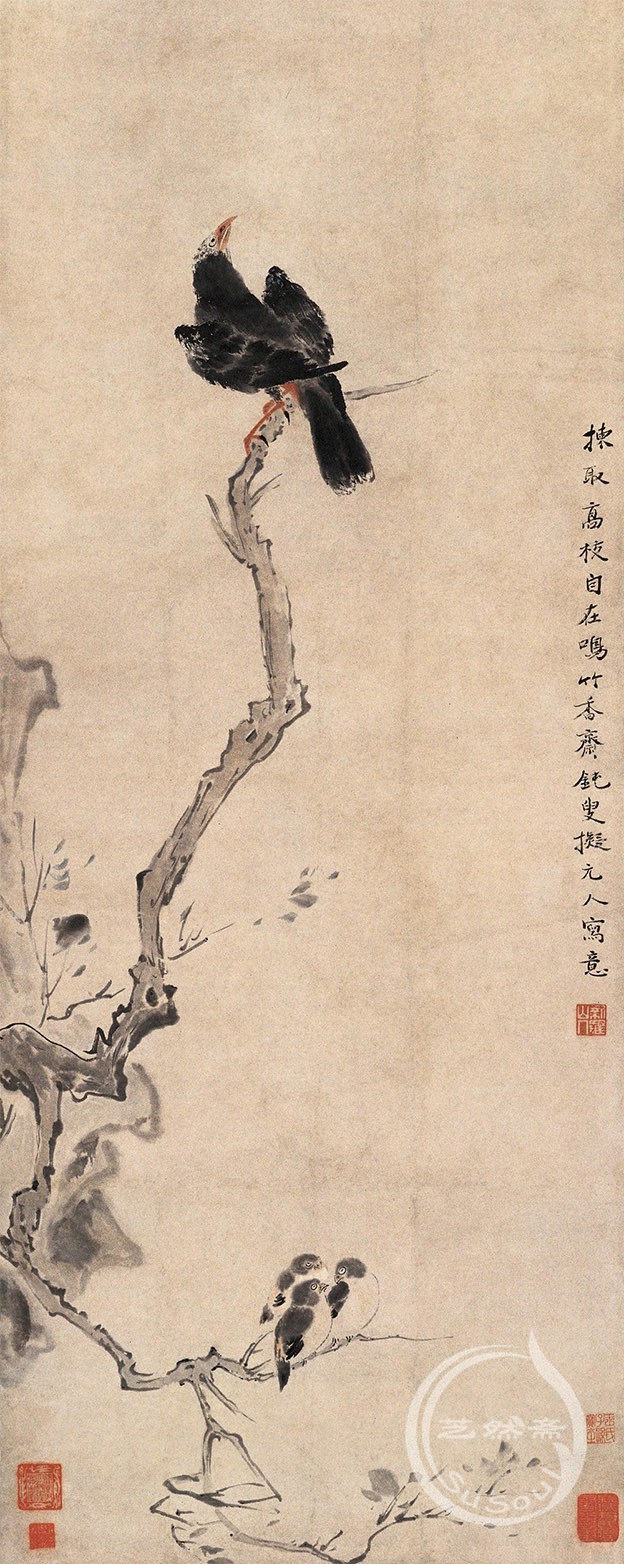 揀取高枝自在鳴竹香齋鈍叟擬元人寫意
新羅山人
艺然斋
SuSoul